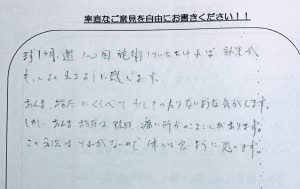 率直なご意見を自由にお書きください!!
週1ヶ月、週1〜2回 施術していただければ
もっとよくなるように感じます。
あんま、指圧にくらべて少しものたりないような気がします。
しかし、あんま、指圧は 翌日、痛い所がのこることがあります。
この方法はそれがないので体には良いように思います。